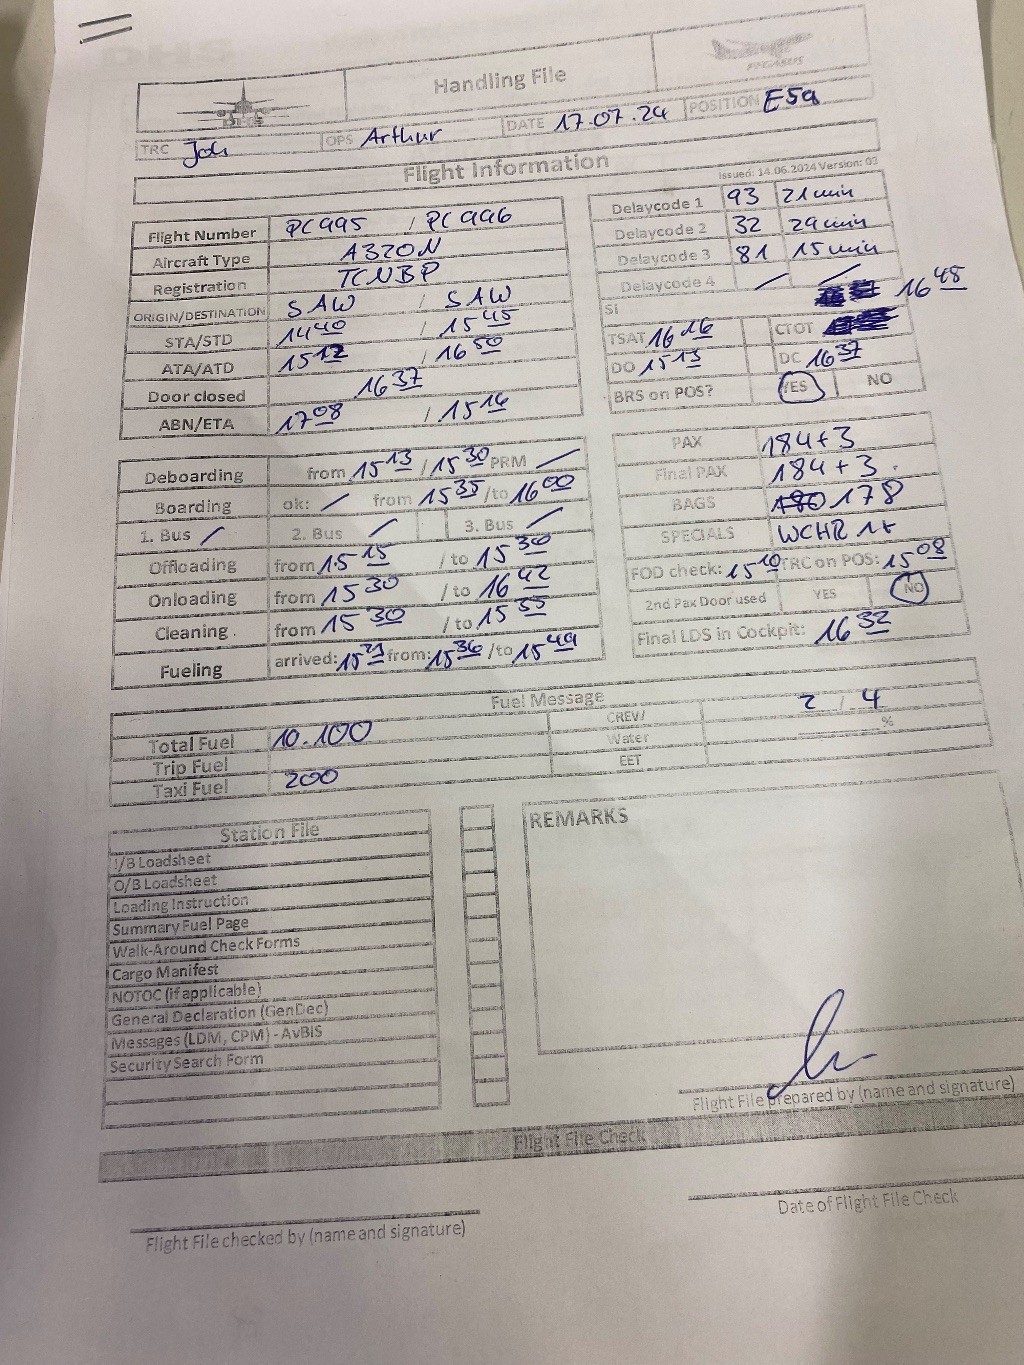 Handling File
PEGASUS
TRC Joh OPS Arthur DATE 17.07.24 POSITION E59
Flight Information
Issued: 14.06.2024 Version: 03
Flight Number PC 995 / PC 996
Aircraft Type A320N
Registration TCNBP
ORIGIN/DESTINATION SAW / SAW
STA/STD 1440 / 1545
ATA/ATD 1512 / 1650
Door closed 1637
ABN/ETA 1708 / 1514
Delaycode 1 93 21 min
Delaycode 2 32 29 min
Delaycode 3 81 15 min
Delaycode 4 / /
SI 1648
TSAT 1616 CTOT
DO 1513 DC 1637
BRS on POS? YES NO
Deboarding from 1513 / 1530 PRM /
Boarding ok: / from 1535 /to 1600
1. Bus / 2. Bus / 3. Bus /
Offloading from 1515 / to 1530
Onloading from 1530 / to 1642
Cleaning. from 1530 / to 1535
Fueling arrived: 1521 from: 1536 /to 1549
PAX 184+3
Final PAX 184+3.
BAGS 180 178
SPECIALS WCHR 1x
FOD check: 1510 TRC on POS: 1508
2nd Pax Door used YES NO
Final LDS in Cockpit: 1632
Fuel Message
Total Fuel 10.100 CREW/ 2 / 4
Trip Fuel Water %
Taxi Fuel 200 EET
Station File
I/B Loadsheet
O/B Loadsheet
Loading Instruction
Summary Fuel Page
Walk-Around Check Forms
Cargo Manifest
NOTOC (if applicable)
General Declaration (GenDec)
Messages (LDM, CPM) - AvBIS
Security Search Form
REMARKS
Flight File prepared by (name and signature)
Flight File Check
Flight File checked by (name and signature)
Date of Flight File Check